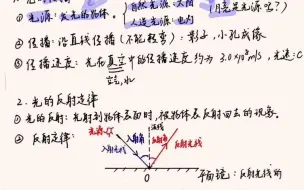 ① 光源: 发光的物体.
自然光源: 太阳
人造光源: 电灯
(月亮是光源吗?)
② 传播: 沿直线传播(不能转弯): 影子, 小孔成像
③ 传播速度: 光在真空中的传播速度约为 3.0×10⁸m/s, 光速: C
2. 光的反射定律
① 光的反射: 光射到物体表面时, 被物体表面反射回去的现象.
② 反射定律:
光源
法线
入射角
反射角
入射光线
反射光线
O
平面镜: 反射光线的